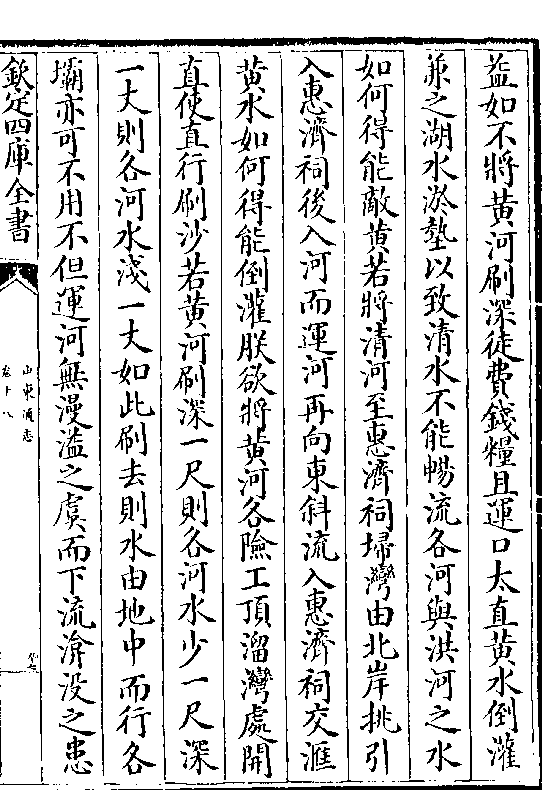 益如不將黄河刷深徒費錢糧且運口太直黄水倒灌
兼之湖水淤墊以致清水不能暢流各河與洪河之水
如何得能敵黄若將清河至惠濟祠埽灣由北岸挑引
入惠濟祠後入河而運河再向東斜流入惠濟祠交滙
黄水如何得能倒灌朕欲將黄河各險工頂溜灣處開
直使直行刷沙若黄河刷深一尺則各河水少一尺深
一丈則各河水淺一丈如此刷去則水由地中而行各
壩亦可不用不但運河無漫溢之虞而下流渰没之患
欽定四庫全書
山東通志
卷十八